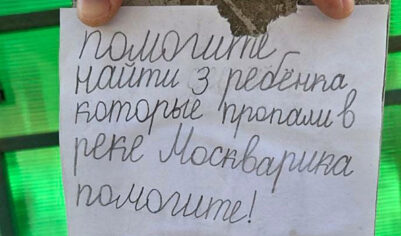 помогите
найти 3 ребёнка
которые пропали в
реке Москварика
помогите!